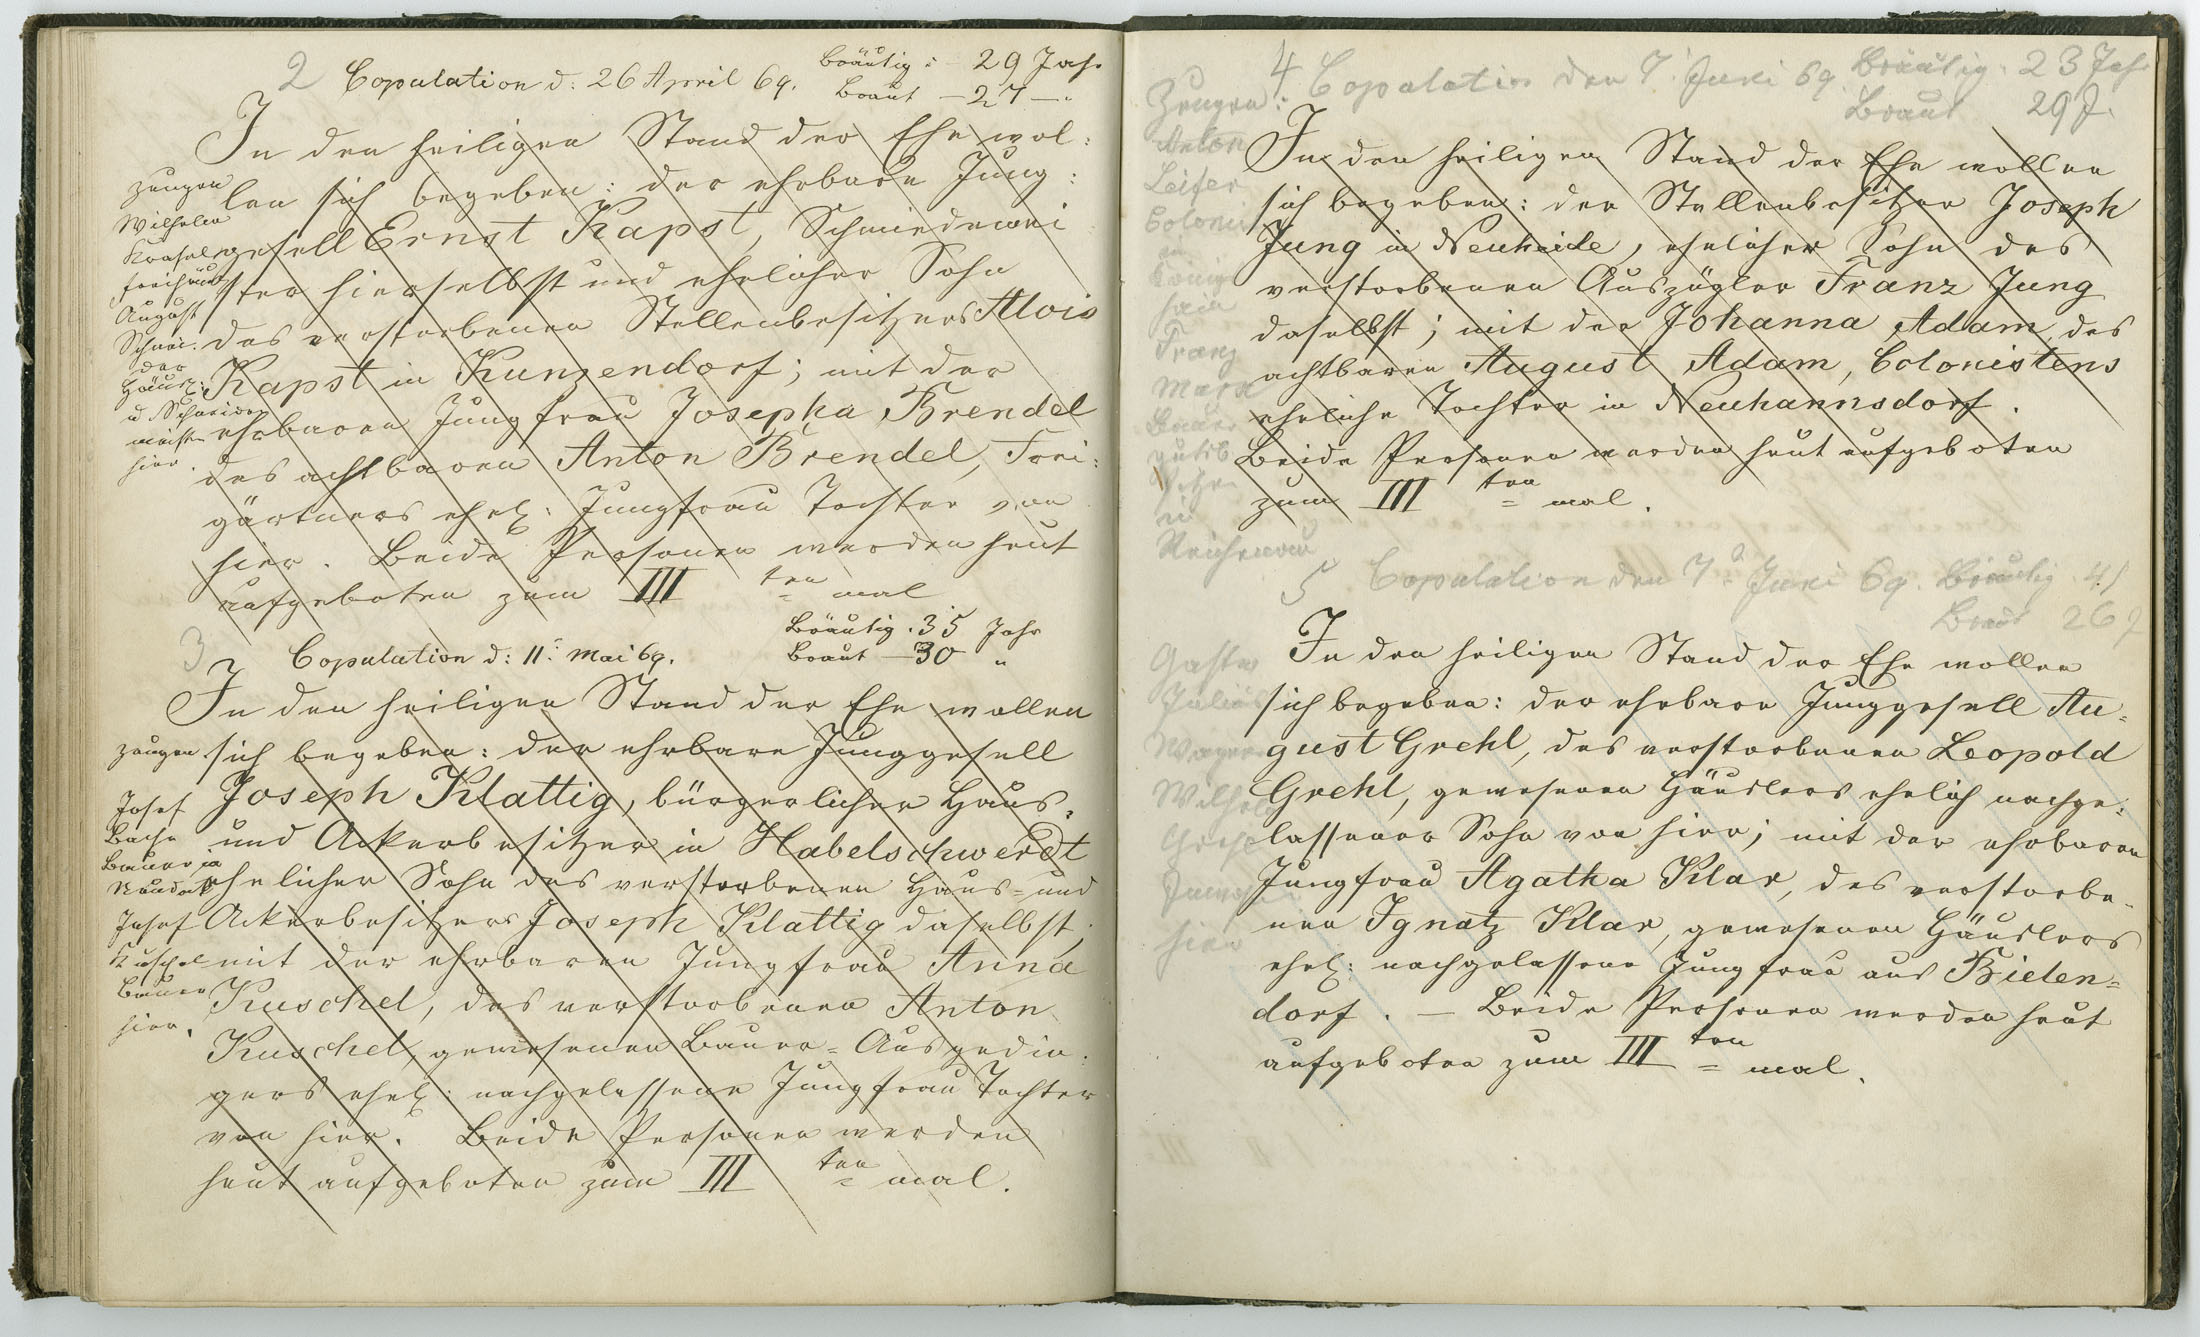 2 Copulation d: 26 April 69. Bräutig: - 29 Jahr
Braut - 27 - "
In den heiligen Stand der Ehe wol:
len sich begeben: der ehrbare Jung:
gesell Ernst Kapst, Schmiedemei
ster hierselbst und ehelicher Sohn
des verstorbenen Stellenbesitzers Alois
Kapst in Kunzendorf; mit der
ehrbaren Jungfrau Josepha Brendel
des achtbaren Anton Brendel, Frei:
gärtners ehel: Jungfrau Tochter von
hier. Beide Personen werden heut
aufgeboten zum III ten = mal
Zeugen
Wilhelm
August
Schnei:
der
Häusl:
u Schneider
meister
hier.
3 Copulation d: 11. Mai 69. Bräutig. 35 Jahr
Braut - 30 "
In den heiligen Stand der Ehe wollen
sich begeben: der ehrbare Junggesell
Joseph Klattig, bürgerlicher Haus-
und Ackerbesitzer in Habelschwerdt
ehelicher Sohn des verstorbenen Haus- und
Ackerbesitzers Joseph Klattig daselbst,
mit der ehrbaren Jungfrau Anna
Kuschel, des verstorbenen Anton
Kuschel, gewesenen Bauer-Ausgedin:
gers ehel: nachgelassene Jungfrau Tochter
von hier. Beide Personen werden
heut aufgeboten zum III ten = mal.
Zeugen
Josef
Bauer in
Josef
Kuschel
Bauer
hier.
4 Copulation den 7. Juni 69. Bräutig. 23 Jahr
Braut 29 J.
In den heiligen Stand der Ehe wollen
sich begeben: der Stellenbesitzer Joseph
Jung in Neuheide, ehelicher Sohn des
verstorbenen Auszügler Franz Jung
daselbst; mit der Johanna Adam, des
achtbaren August Adam, Colonistens
eheliche Tochter in Neuhannsdorf.
Beide Personen werden heut aufgeboten
zum III ten = mal.
Zeugen:
Anton
Leifer
Colonist
in
Königs
hain
Franz
Bauer
gutsb
sitzer
in
Reichenau
5 Copulation den 7. Juni 69. Bräutig 41
Braut 26 J
In den heiligen Stand der Ehe wollen
sich begeben: der ehrbare Junggesell Au-
gust Grehl, des verstorbenen Leopold
Grehl, gewesenen Häuslers ehelich nachge:
lassener Sohn von hier; mit der ehrbaren
Jungfrau Agatha Klar, des verstorbe-
nen Ignatz Klar, gewesenen Häuslers
ehel: nachgelassene Jungfrau aus Bielen-
dorf. — Beide Personen werden heut
aufgeboten zum III ten = mal.
Julius
Wilhel
hier